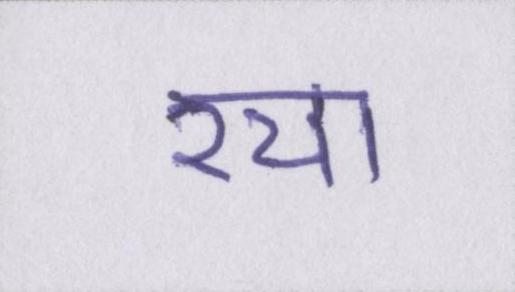 रया